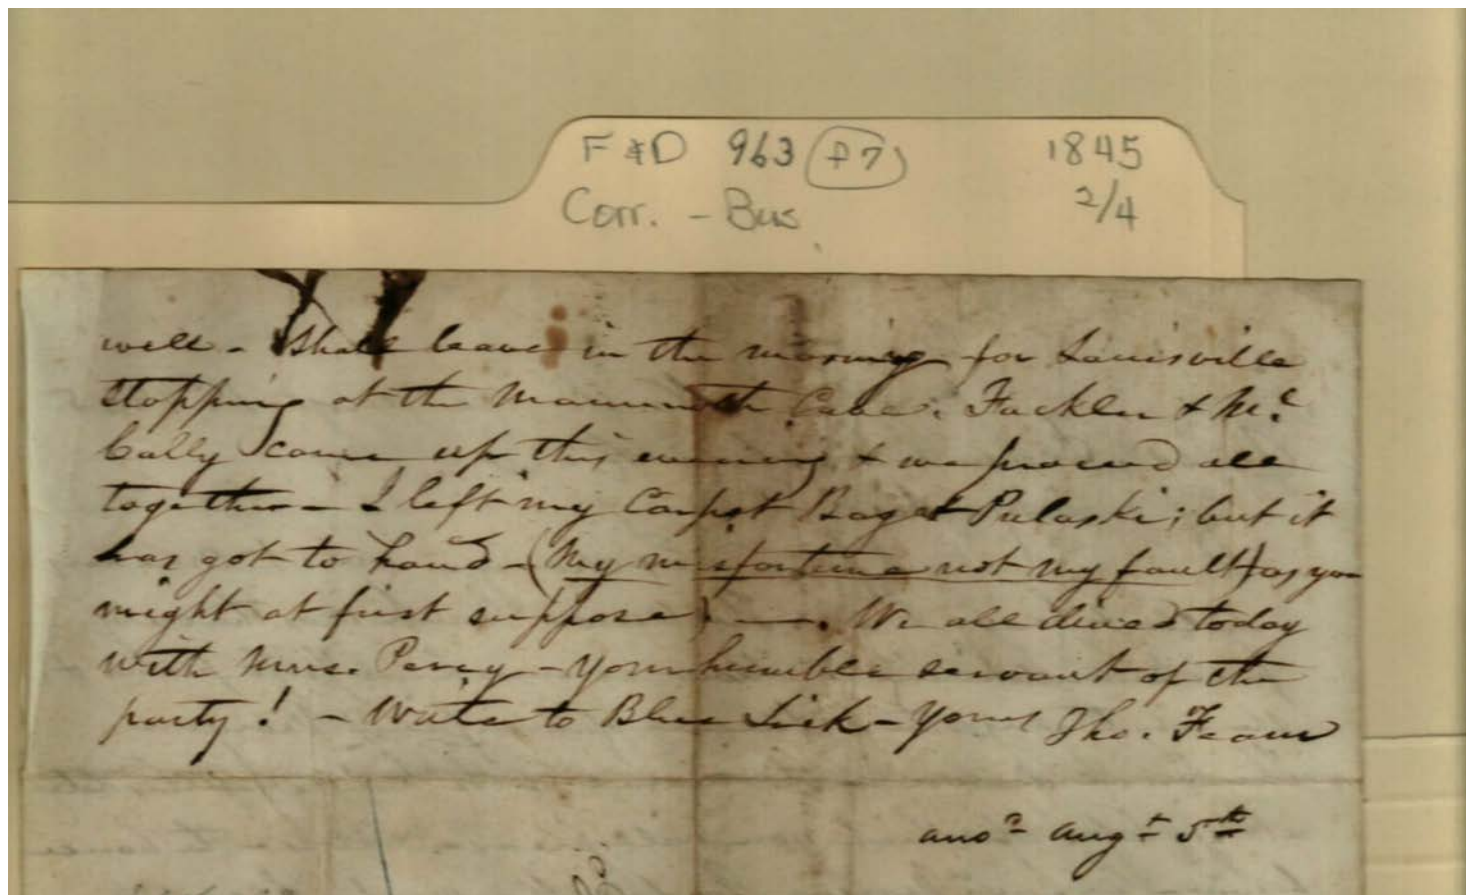 F & D 963 f7 1845
Corr. - Bus 2/4
well - Shall leave in the morning for Louisville
stopping at the Mammoth Cave. Fackler & Mc
Cally came up this evening & we proceed all
together - I left my Carpet Bag at Pulaski; but it
has got to hand - (My misfortune not my fault) as you
might at first suppose) —. We all dined today
with Mrs. Percy - your humble servant of the
party! - Write to Blue Lick - Yours Tho. Fearn
ansd Augt 5th